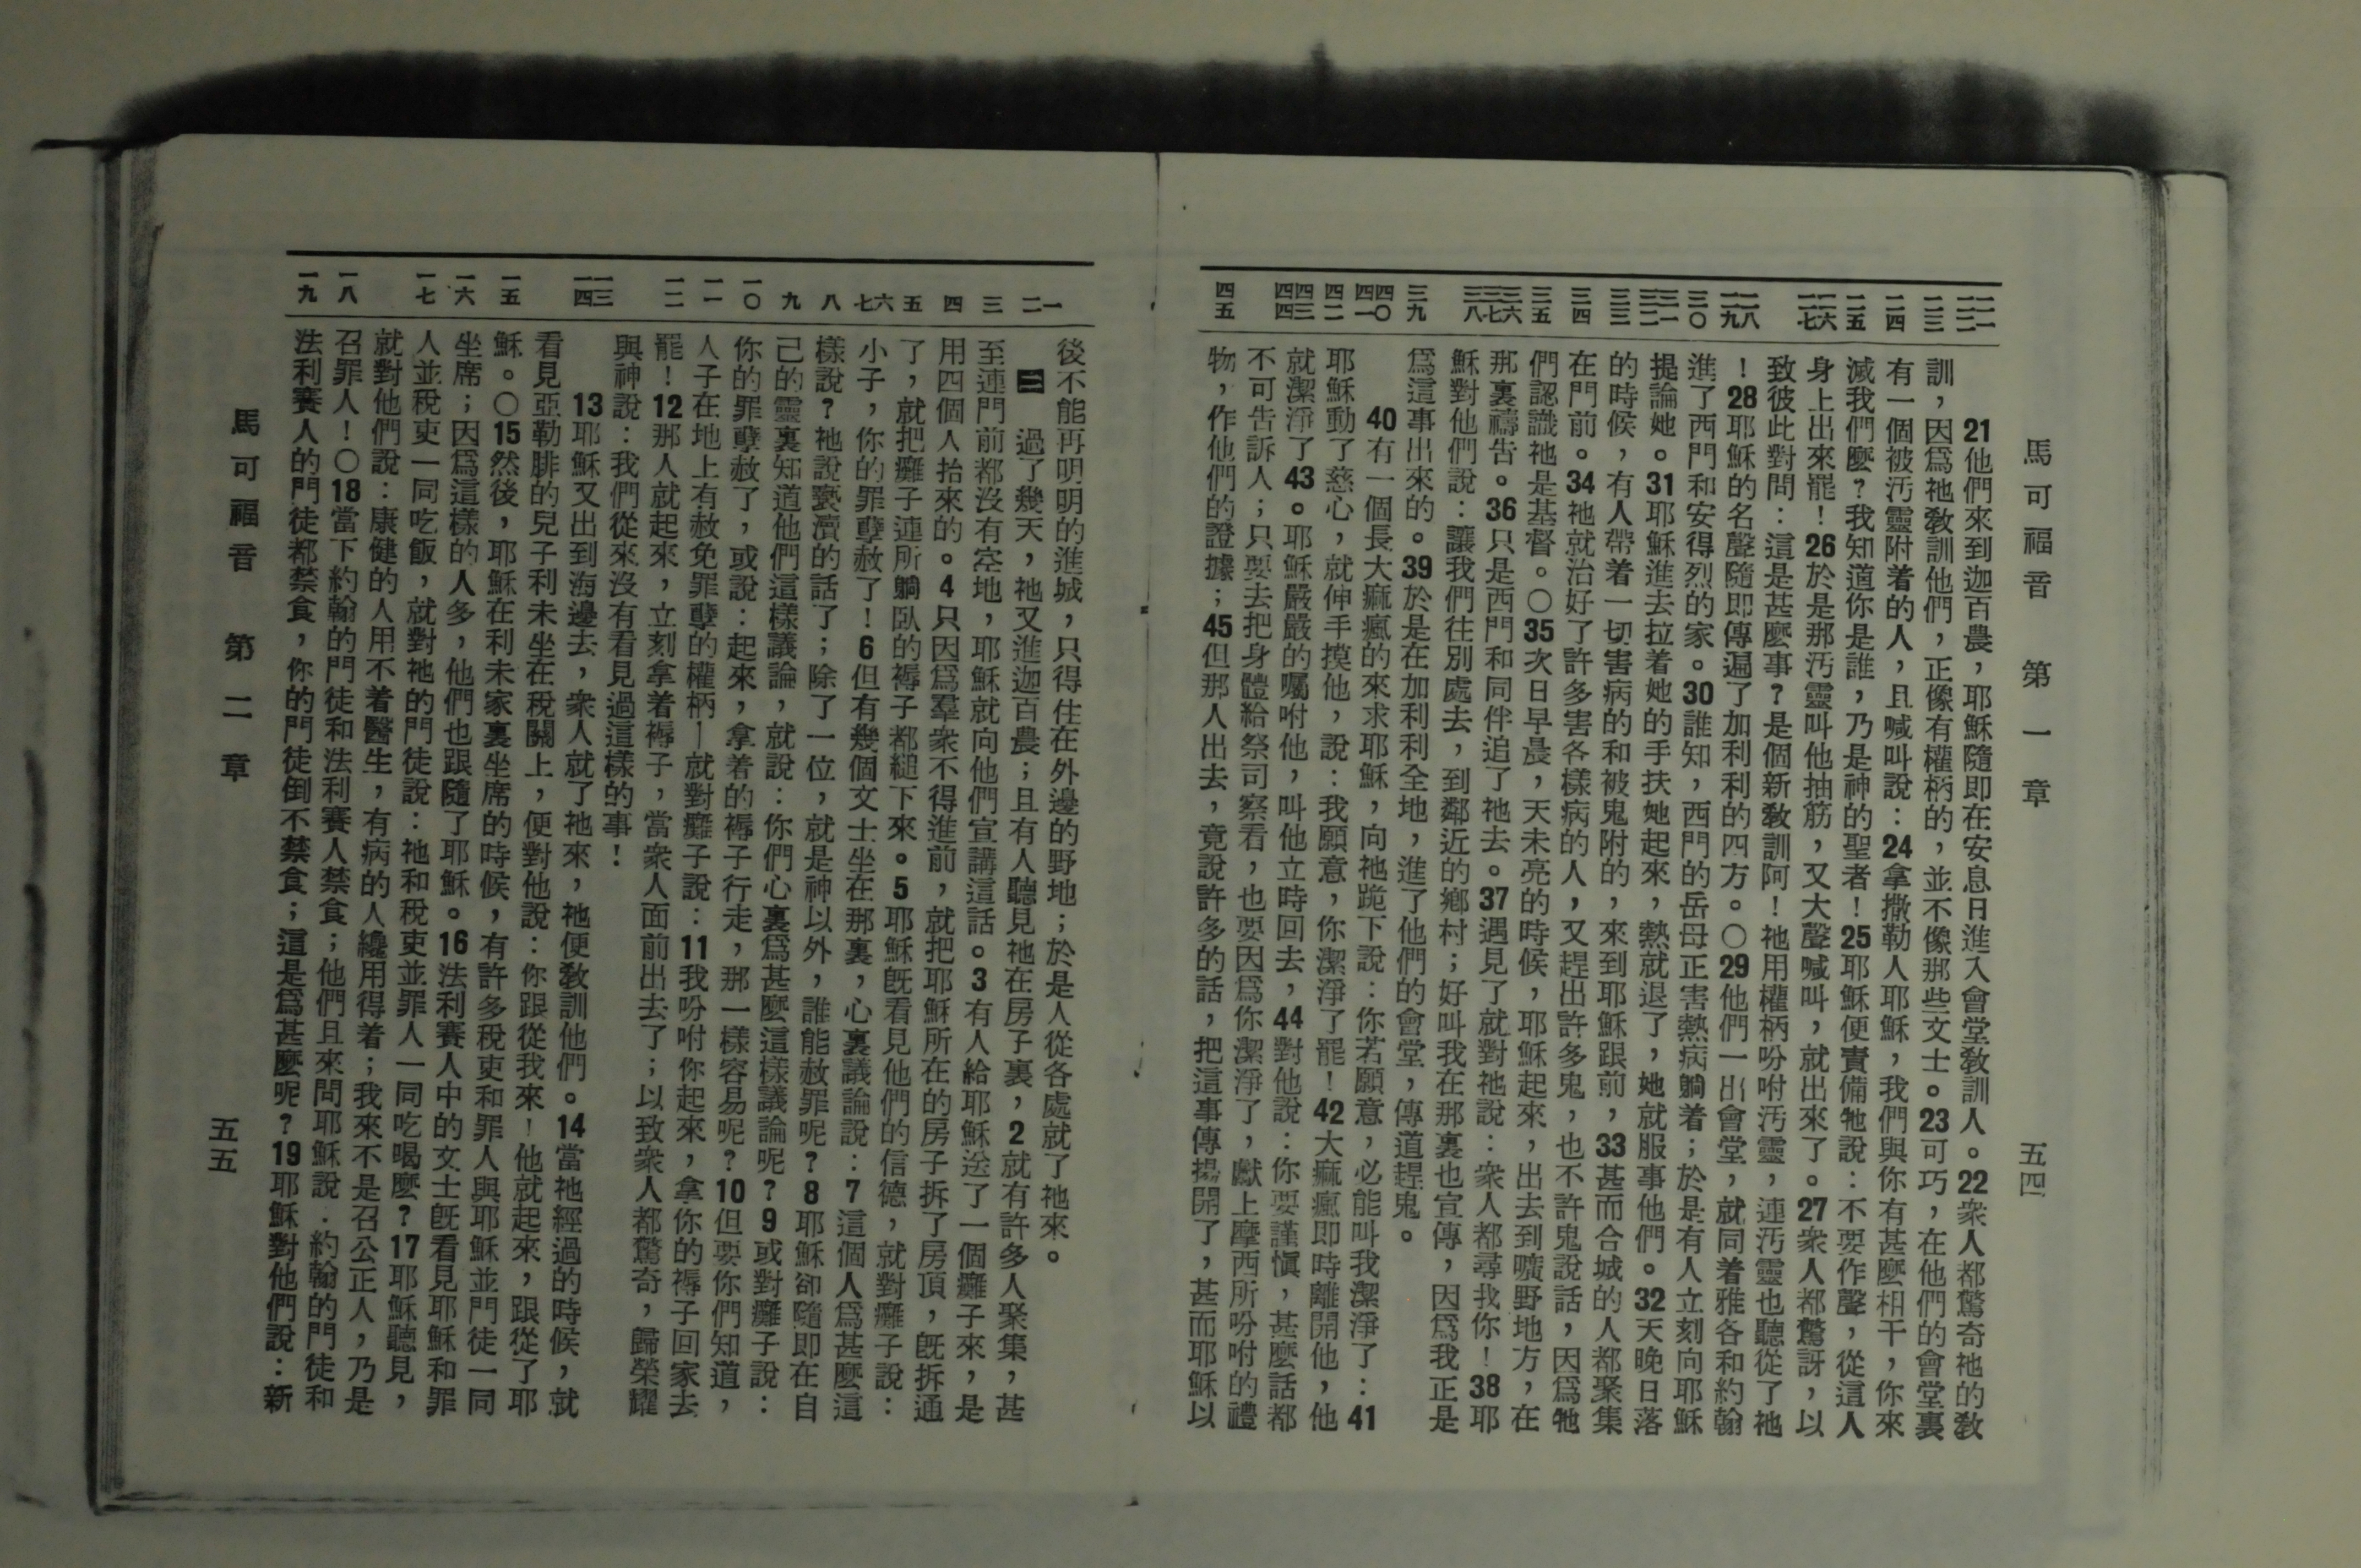 馬可福音 第一章 五四
21他們來到迦百農，耶穌隨即在安息日進入會堂教訓人。22衆人都驚奇祂的敎
訓，因爲祂敎訓他們，正像有權柄的，並不像那些文士。23可巧，在他們的會堂裏
有一個被汚靈附着的人，且喊叫說：24拿撒勒人耶穌，我們與你有甚麼相干，你來
滅我們麼？我知道你是誰，乃是神的聖者！25耶穌便責備牠說：不要作聲，從這人
身上出來罷！26於是那汚靈叫他抽筋，又大聲喊叫，就出來了。27衆人都驚訝，以
致彼此對問：這是甚麼事？是個新敎訓阿！祂用權柄吩咐汚靈，連汚靈也聽從了祂
！28耶穌的名聲隨即傳遍了加利利的四方。〇29他們一出會堂，就同着雅各和約翰
進了西門和安得烈的家。30誰知，西門的岳母正害熱病躺着；於是有人立刻向耶穌
提論她。31耶穌進去拉着她的手扶她起來，熱就退了，她就服事他們。32天晚日落
的時候，有人帶着一切害病的和被鬼附的，來到耶穌跟前，33甚而合城的人都聚集
在門前。34祂就治好了許多害各樣病的人，又趕出許多鬼，也不許鬼說話，因爲牠
們認識祂是基督。〇35次日早晨，天未亮的時候，耶穌起來，出去到曠野地方，在
那裏禱告。36只是西門和同伴追了祂去。37遇見了就對祂說：衆人都尋找你！38耶
穌對他們說：讓我們往別處去，到鄰近的鄉村；好叫我在那裏也宣傳，因爲我正是
爲這事出來的。39於是在加利利全地，進了他們的會堂，傳道趕鬼。
40有一個長大痲瘋的來求耶穌，向祂跪下說：你若願意，必能叫我潔淨了：41
耶穌動了慈心，就伸手摸他，說：我願意，你潔淨了罷！42大痲瘋即時離開他，他
就潔淨了43。耶穌嚴嚴的囑咐他，叫他立時回去，44對他說：你要謹愼，甚麼話都
不可告訴人；只要去把身體給祭司察看，也要因爲你潔淨了，獻上摩西所吩咐的禮
物，作他們的證據；45但那人出去，竟說許多的話，把這事傳揚開了，甚而耶穌以
二一
二二
二三
二四
二五
二六
二七
二八
二九
三〇
三一
三二
三三
三四
三五
三六
三七
三八
三九
四〇
四一
四二
四三
四四
四五
後不能再明明的進城，只得住在外邊的野地；於是人從各處就了祂來。
二 過了幾天，祂又進迦百農；且有人聽見祂在房子裏，2就有許多人聚集，甚
至連門前都沒有空地，耶穌就向他們宣講這話。3有人給耶穌送了一個癱子來，是
用四個人抬來的。4只因爲羣衆不得進前，就把耶穌所在的房子拆了房頂，旣拆通
了，就把癱子連所躺臥的褥子都縋下來。5耶穌旣看見他們的信德，就對癱子說：
小子，你的罪孽赦了！6但有幾個文士坐在那裏，心裏議論說：7這個人爲甚麼這
樣說？祂說褻瀆的話了；除了一位，就是神以外，誰能赦罪呢？8耶穌卻隨即在自
己的靈裏知道他們這樣議論，就說：你們心裏爲甚麼這樣議論呢？9或對癱子說：
你的罪孽赦了，或說：起來，拿着的褥子行走，那一樣容易呢？10但要你們知道，
人子在地上有赦免罪孽的權柄—就對癱子說：11我吩咐你起來，拿你的褥子回家去
罷！12那人就起來，立刻拿着褥子，當衆人面前出去了；以致衆人都驚奇，歸榮耀
與神說：我們從來沒有看見過這樣的事！
13耶穌又出到海邊去，衆人就了祂來，祂便敎訓他們。14當祂經過的時候，就
看見亞勒腓的兒子利未坐在稅關上，便對他說：你跟從我來！他就起來，跟從了耶
穌。〇15然後，耶穌在利未家裏坐席的時候，有許多稅吏和罪人與耶穌並門徒一同
坐席；因爲這樣的人多，他們也跟隨了耶穌。16法利賽人中的文士旣看見耶穌和罪
人並稅吏一同吃飯，就對祂的門徒說：祂和稅吏並罪人一同吃喝麼？17耶穌聽見，
就對他們說：康健的人用不着醫生，有病的人纔用得着；我來不是召公正人，乃是
召罪人！〇18當下約翰的門徒和法利賽人禁食；他們且來問耶穌說：約翰的門徒和
法利賽人的門徒都禁食，你的門徒倒不禁食；這是爲甚麼呢？19耶穌對他們說：新
一
二
三
四
五
六
七
八
九
一〇
一一
一二
一三
一四
一五
一六
一七
一八
一九
馬可福音 第二章 五五